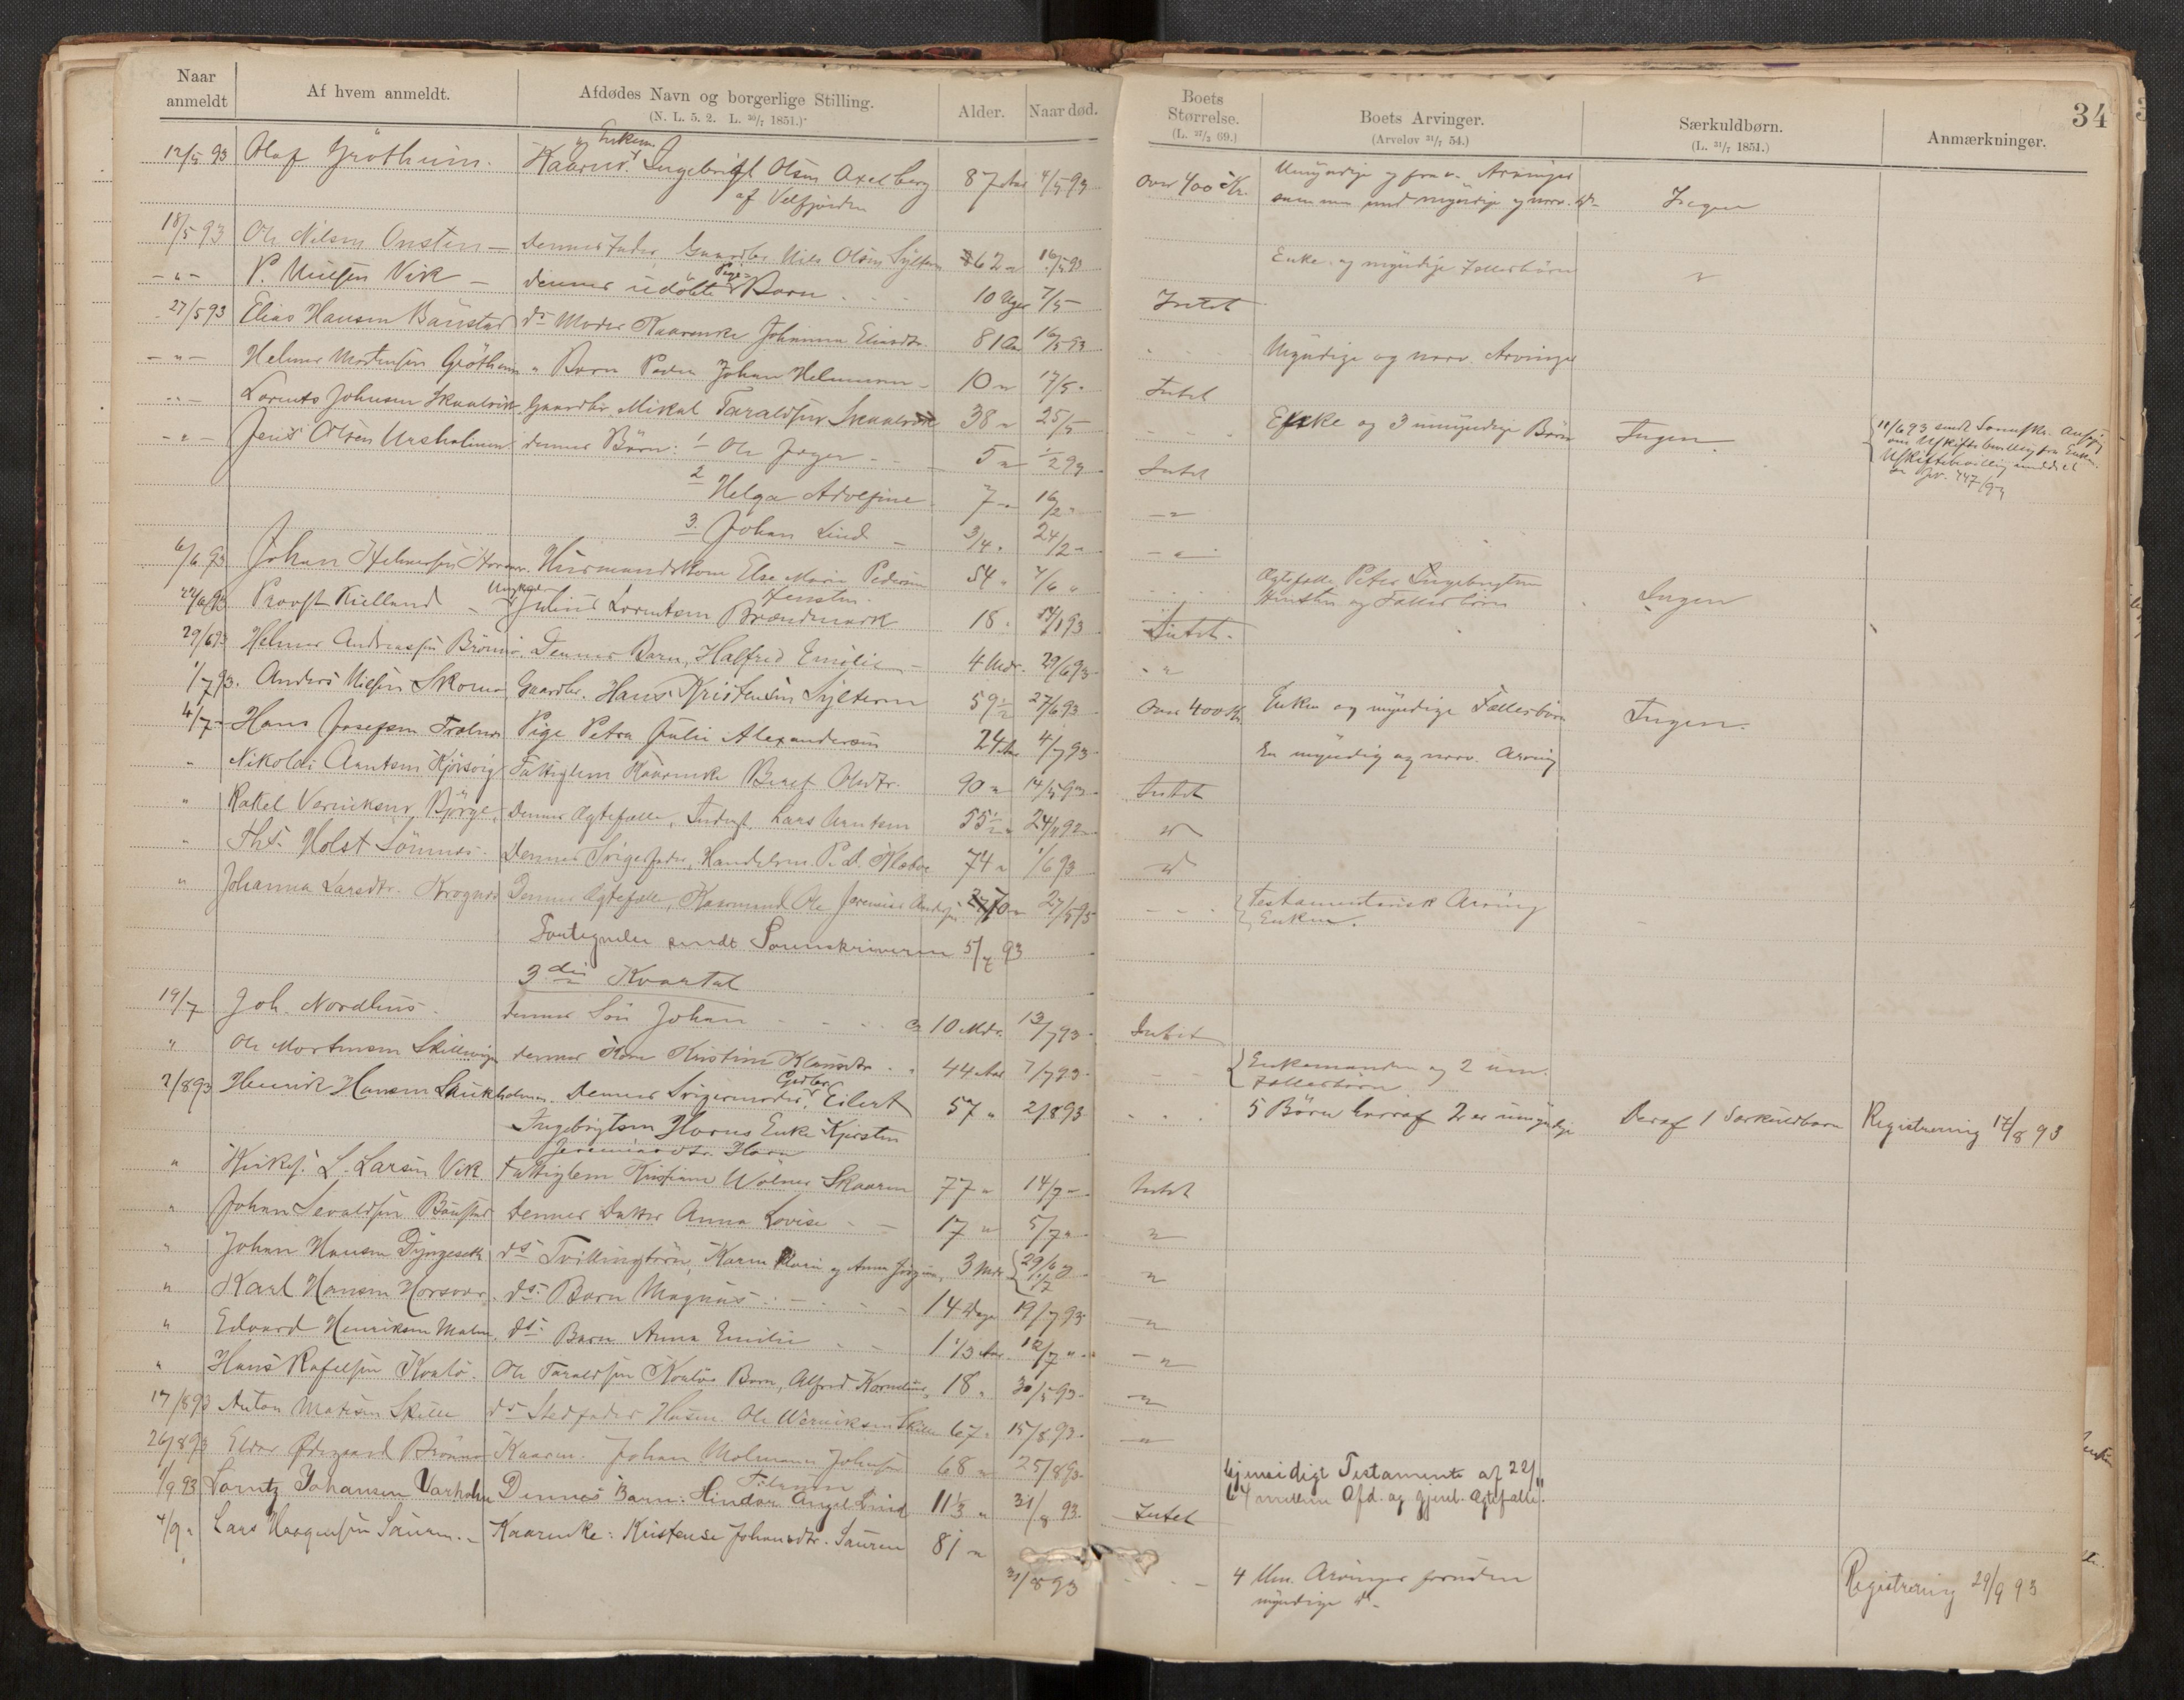 Naar anmeldt
Af hvem anmeldt.
Afdødes Navn og borgerlige Stilling.
(N. L. 5. 2. L. 30/7 1851.)
Alder.
Naar død.
Boets Størrelse.
(L. 27/3 69.)
Boets Arvinger.
(Arvelov 31/7 54.)
Særkuldbørn.
(L. 31/7 1851.)
Anmærkninger.
34
12/5 93 Olaf Grötheim. Kaarm. Ingebrigt Olsen Axelberg 87 Aar 4/5 93 Over 400 Kr. Umyndige og frav. Arvinger Ingen
af Velfjorden sammen med myndige og nærv. do
18/5 93 Ole Nilsen Onsten Dennes Fader Gaardbr. Nils Olsen Sylten 62 " 16/5 93 Enke og myndige Fællesbörn "
- " - P. Nielsen Vik dennes udöbte Pige Barn 10 Uger 7/5 Intet
27/5 93 Elias Hansen Bönstad ds Moder Kaarenke Johanna Eliasdtr. 81 Aar 16/5 93 Myndige og nærv. Arvinger
- " - Helmer Mortensen Grötheim " Barn Peder Johan Helmersen 10 " 17/5 Intet
- " - Lorents Johnsen Skaalvik Gaardbr. Mikal Taraldsen Skaalvik 38 " 25/5 Enke og 3 umyndige Börn Ingen. 10/6 93 sendt Sorenskr. Ansøg
om Uskiftebevilling fra Enken.
Uskiftebevilling meddelt
- " - Jens Olsen Ursholmen dennes Börn: 1 Ole Jæger 5 " 1/2 93 Intet
2 Helga Adolfine 7 " 16/2 "
3. Johan Lind 3/4 " 24/2 "
6/6 93 Johan Helmersen Horsvær. Husmandskone Else Marie Pedersen 54 " 4/6 " Ægtefælle Peter Ingebrigtsen Ingen
og Fællesbörn
22/6 93 Provst Kielland Ungkarl Julius Lorentsen Brændmark 18 " Intet.
29/6 93 Helmer Andreassen Brönnö. Dennes Barn, Halfred Emilie 4 Mdr. 29/6 93 "
1/7 93. Anders Nielsen Skomo Gaardbr. Hans Kristensen Sylteren 59 1/2 27/6 93 Over 400 Kr. Enke og myndige Fællesbörn Ingen.
4/7 - Hans Josefsen Trælnes Pige Petra Julie Alexandersen 24 Aar 4/7 93 En myndig og nærv. Arving
" Nikolai Arntsen Kjörsvig Fattiglem Kaarenke Beret Olsdtr. 90 " 14/5 93 Intet
" Rakel Veriksen Björge, Dennes Ægtefælle, Inderst Lars Arntsen 55 1/2 " 24/11 92 do
" Ths. Holst Sömnes. Dennes Svigerfader, Handelsm. P. A. Klæboe 74 " 1/6 93 do
" Johanna Larsdtr. Krognes Dennes Ægtefælle, Kaarmand Ole Jeremias Anders. 70 " 27/5 93 Testamentarisk Arving
Enken.
Fortegnelse sendt Sorenskriveren 5/7 93
3die Kvartal
19/7 Joh. Nordhus. dennes Sön Johan Ca 10 Mdr. 13/7 93 Intet
" Ole Mortensen Skillevigen dennes Kone Kristine Klausdtr. 44 Aar 7/7 93 Enkemanden og 2 um.
Fællesbörn
2/8 93 Henrik Hansen Saukholmen. Dennes Svigermoder, Gbr. Eilert 57 " 2/8 93 5 Börn hvoraf 2 er umyndige Deraf 1 Særkuldbarn Registrering 17/8 93
Ingebrigtsen Horns Enke Kjersten
Jeremiasdtr. Horn
" Kirkes. L. Larsen Vik Fattiglem Kristian Wölner Skaaren 77 " 14/7 " Intet
" Johan Sevaldsen Bönstad dennes Datter Anna Lovise 17 " 5/7 " "
" Johan Hansen ds Tvillingbörn, Karen Marie og Anna 3 Mdr. 29/6 og 1/7 "
" Karl Hansen Horsvær ds. Barn Magnus 14 Dage 19/7 93 "
" Edvard Henriksen Malm. ds. Barn Anna Emilie 1 1/3 Aar. 12/7 " "
" Hans Rafelsen Kvalö. Ole Taraldsen Kvalös Barn, Alfred Kornelius, 18 " 30/5 93 "
17/8 93 Anton Matisen Skille ds Stedfader Husm. Ole Weriksen Skille 67 " 15/8 93 "
26/8 93 Elder Ødegaard Brönnö Kaarm. Johan Molmann Johnsen 68 " 25/8 93 Gjensidigt Testamente af 22/11
Tilrem 64 mellem Afd. og gjenl. Ægtefælle.
1/9 93 Lorntz Johansen Varholm Dennes Barn: Hindar Angel Lind 11 1/3 " 31/8 93. Intet
4/9 " Lars Haagensen Sauren. Kaarenke: Kristense Johansdtr. Sauren 81 " 31/8 93 4 Um. Arvinger foruden Registrering 29/9 93
myndige do